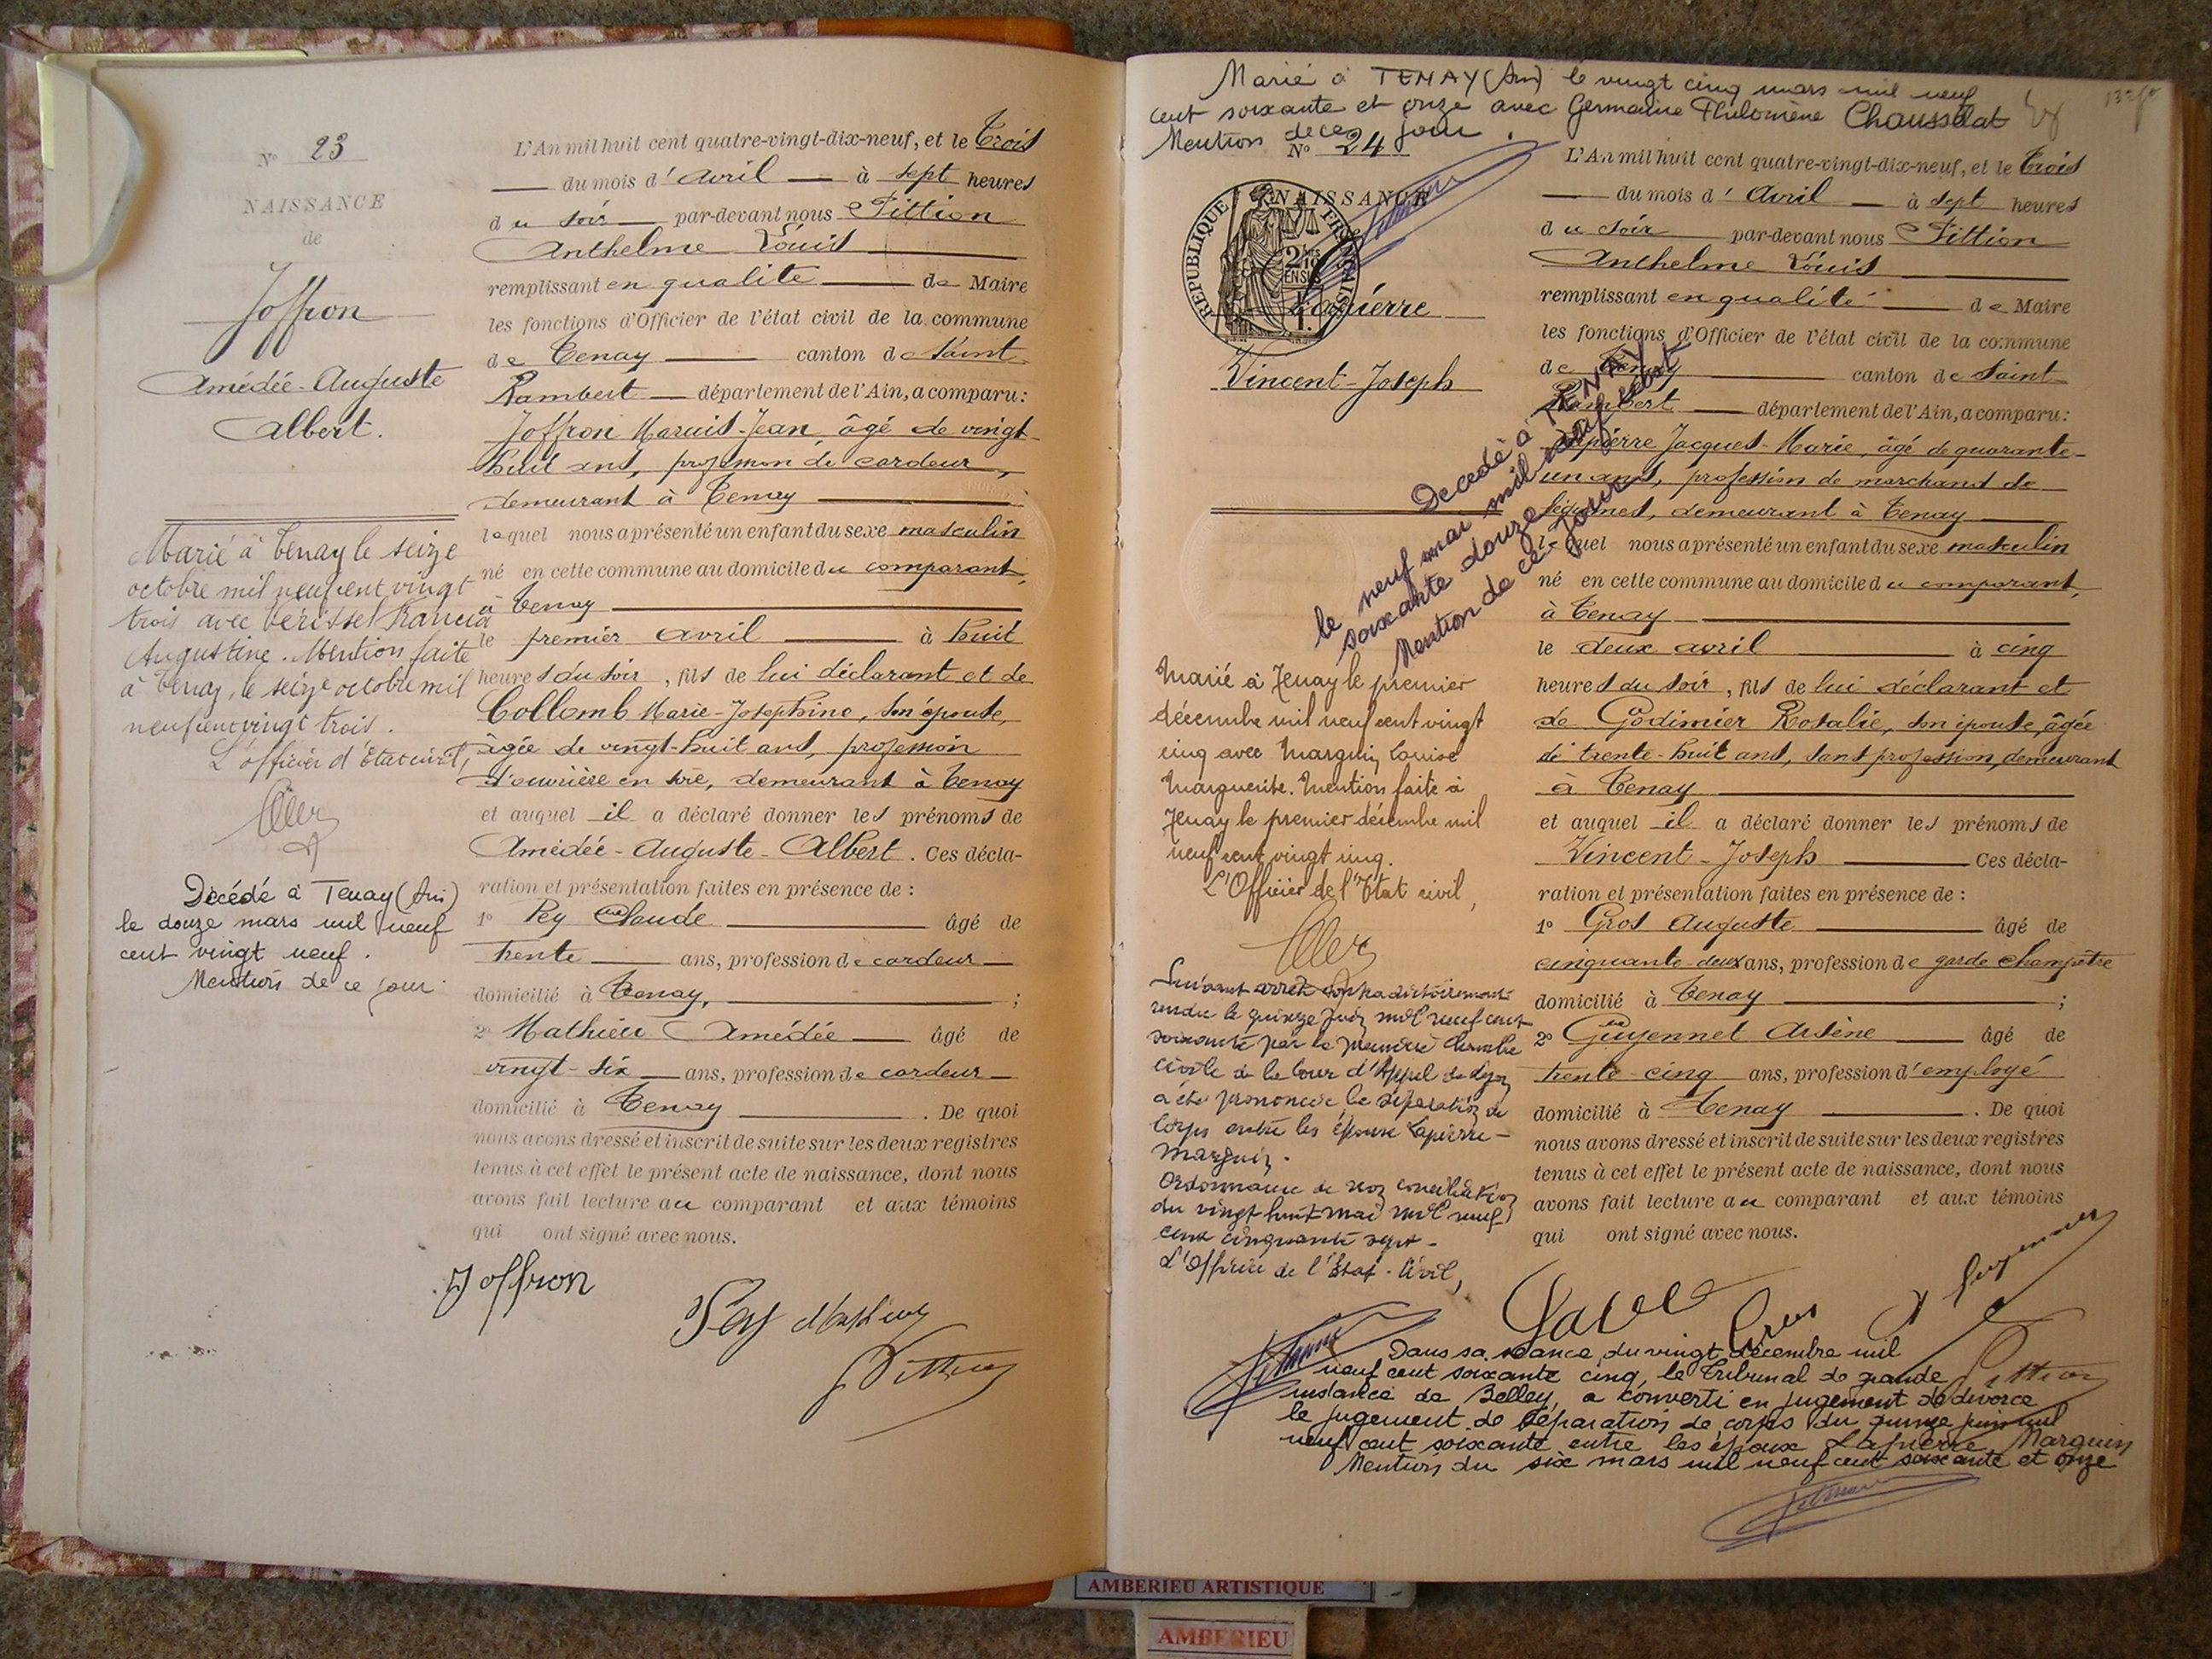 N° 23
NAISSANCE
de
Joffron
Amédée-Auguste
Albert.
Marié à Tenay le seize
octobre mil neuf cent vingt
trois avec Francia
Augustine. Mention faite
à Tenay, le seize octobre mil
neuf cent vingt trois.
L'officier d'État civil,
Décédé à Tenay (Ain)
le douze mars mil neuf
cent vingt neuf.
Mention de ce jour.
L'An mil huit cent quatre-vingt-dix-neuf, et le Trois
du mois d'Avril à sept heures
du soir par-devant nous Pittion
Anthelme Louis
remplissant en qualité de Maire
les fonctions d'Officier de l'état civil de la commune
de Tenay canton de Saint
Rambert département de l'Ain, a comparu:
Joffron Marius-Jean, âgé de vingt-
huit ans, profession de cardeur,
demeurant à Tenay
lequel nous a présenté un enfant du sexe masculin
né en cette commune au domicile du comparant,
à Tenay
le premier avril à huit
heures du soir, fils de lui déclarant et de
Collomb Marie-Josephine, son épouse,
âgée de vingt-huit ans, profession
d'ouvrière en soie, demeurant à Tenay
et auquel il a déclaré donner les prénoms de
Amédée-Auguste-Albert. Ces décla-
ration et présentation faites en présence de :
1° Pey Claude âgé de
trente ans, profession de cardeur
domicilié à Tenay, ;
2° Mathieu Amédée âgé de
vingt-six ans, profession de cardeur
domicilié à Tenay . De quoi
nous avons dressé et inscrit de suite sur les deux registres
tenus à cet effet le présent acte de naissance, dont nous
avons fait lecture au comparant et aux témoins
qui ont signé avec nous.
Joffron
Pey Mathieu
Pittion
Marié à TENAY (Ain) le vingt cinq mars mil neuf
cent soixante et onze avec Germaine Philomène Chausselat
Mention de ce jour.
N° 24
NAISSANCE
RÉPUBLIQUE FRANÇAISE
2/10 EN SUS
Lapierre
Vincent-Joseph
Décédé à TENAY
le neuf mai mil neuf cent
soixante douze
Mention de ce jour
Marié à Tenay le premier
décembre mil neuf cent vingt
cinq avec Marguin Louise
Marguerite. Mention faite à
Tenay le premier décembre mil
neuf cent vingt cinq.
L'Officier de l'État civil,
Suivant arrêt contradictoirement
rendu le quinze Juin mil neuf cent
soixante par la première chambre
civile de la Cour d'Appel de Lyon
a été prononcée la séparation de
corps entre les époux Lapierre-
Marguin.
Ordonnance de non conciliation
du vingt huit mai mil neuf
cent cinquante sept -
L'Officier de l'État-Civil,
L'An mil huit cent quatre-vingt-dix-neuf, et le Trois
du mois d'Avril à sept heures
du soir par-devant nous Pittion
Anthelme Louis
remplissant en qualité de Maire
les fonctions d'Officier de l'état civil de la commune
de Tenay canton de Saint
Rambert département de l'Ain, a comparu:
Lapierre Jacques-Marie, âgé de quarante-
un ans, profession de marchand de
légumes, demeurant à Tenay
lequel nous a présenté un enfant du sexe masculin
né en cette commune au domicile du comparant,
à Tenay
le deux avril à cinq
heures du soir, fils de lui déclarant et
de Godimier Rosalie, son épouse, âgée
de trente-huit ans, sans profession, demeurant
à Tenay
et auquel il a déclaré donner les prénoms de
Vincent-Joseph Ces décla-
ration et présentation faites en présence de :
1° Gros Auguste âgé de
cinquante-deux ans, profession de garde champêtre
domicilié à Tenay ;
2° Guyennet Arsène âgé de
trente-cinq ans, profession d'employé
domicilié à Tenay . De quoi
nous avons dressé et inscrit de suite sur les deux registres
tenus à cet effet le présent acte de naissance, dont nous
avons fait lecture au comparant et aux témoins
qui ont signé avec nous.
Gros Guyennet
Pittion
Dans sa séance du vingt décembre mil
neuf cent soixante cinq, le Tribunal de grande
instance de Belley, a converti en jugement de divorce
le jugement de séparation de corps du quinze juin mil
neuf cent soixante entre les époux Lapierre Marguin
Mention du six mars mil neuf cent soixante et onze
AMBERIEU ARTISTIQUE
AMBERIEU